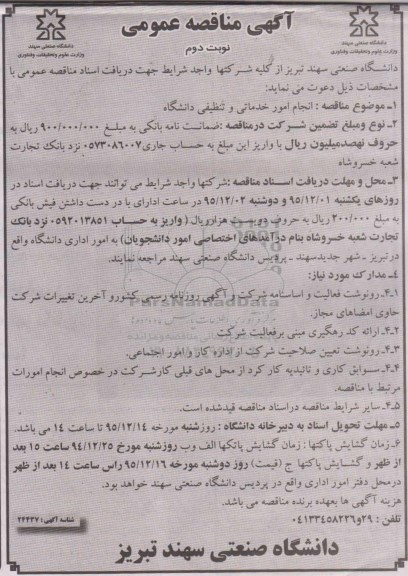 آگهی مناقصه عمومی
نوبت دوم
دانشگاه صنعتی سهند
وزارت علوم وتحقیقات وفناوری
دانشگاه صنعتی سهند
وزارت علوم وتحقیقات وفناوری
دانشگاه صنعتی سهند تبریز از کلیه شرکتها واجد شرایط جهت دریافت اسناد مناقصه عمومی با
مشخصات ذیل دعوت می نماید:
۱- موضوع مناقصه : انجام امور خدماتی و تنظیفی دانشگاه
۲- نوع ومبلغ تضمین شرکت درمناقصه :ضمانت نامه بانکی به مبلغ ۹۰۰/۰۰۰/۰۰۰ ریال به
حروف نهصدمیلیون ریال با واریز این مبلغ به حساب جاری۰۵۷۳۰۸۶۰۰۷ نزد بانک تجارت
شعبه خسروشاه
۳- محل و مهلت دریافت اسناد مناقصه :شرکتها واجد شرایط می توانند جهت دریافت اسناد در
روزهای یکشنبه ۹۵/۱۲/۰۱ و دوشنبه ۹۵/۱۲/۰۲ در ساعت ادارای با در دست داشتن فیش بانکی
به مبلغ ۲۰۰/۰۰۰ ریال به حروف دویست هزارریال (واریز به حساب ۰۵۹۲۰۱۳۸۵۱ نزد بانک
تجارت شعبه خسروشاه بنام درآمدهای اختصاصی امور دانشجویان) به امور اداری دانشگاه واقع
درتبریز ـ شهر جدیدسهند ـ پردیس دانشگاه صنعتی سهند مراجعه نمایند.
۴- مدارک مورد نیاز:
۴ـ۱ـ رونوشت فعالیت و اساسنامه شرکت و آگهی روزنامه رسمی کشورو آخرین تغییرات شرکت
حاوی امضاهای مجاز.
۴ـ۲ـ ارائه کد رهگیری مبنی برفعالیت شرکت
۴ـ۳ـ رونوشت تعیین صلاحیت شرکت از اداره کار و امور اجتماعی.
۴ـ۴ـ سوابق کاری و تائیدیه کار کرد از محل های قبلی کارشرکت در خصوص انجام امورات
مرتبط با مناقصه.
۴ـ۵ـ سایر شرایط مناقصه دراسناد مناقصه قیدشده است.
۵- مهلت تحویل اسناد به دبیرخانه دانشگاه : روزشنبه مورخه ۹۵/۱۲/۱۴ تا ساعت ۱۴ می باشد.
۶- زمان گشایش پاکتها : زمان گشایش پاکتهاا الف وب روزشنبه مورخ ۹۴/۱۲/۲۵ ساعت ۱۵ بعد
از ظهر و گشایش پاکتها ج (قیمت) روز دوشنبه مورخه ۹۵/۱۲/۱۶ راس ساعت ۱۴ بعد از ظهر
درمحل دفتر امور اداری واقع در پردیس دانشگاه صنعتی سهند خواهد بود.
هزینه آگهی ها بعهده برنده مناقصه می باشد.
تلفن : ۲۹و۰۴۱۳۳۴۵۸۲۲۶
شناسه آگهی: ۲۲۴۳۷
دانشگاه صنعتی سهند تبریز
ParsNamadData